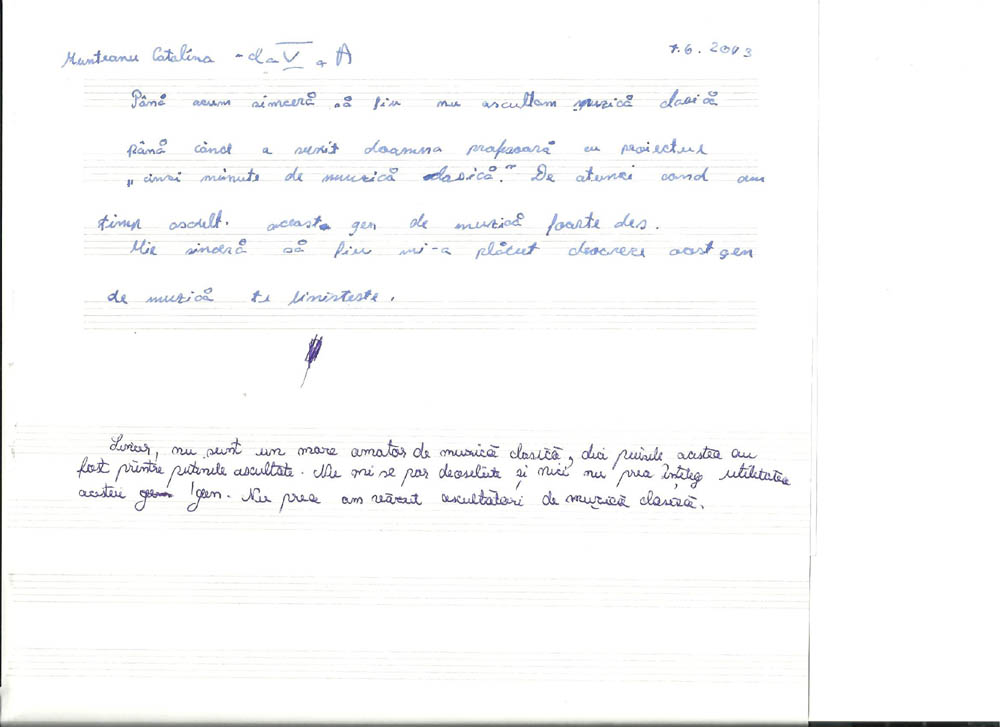 Munteanu Catalina - cls V a A 7.6.2013
Până acum sinceră să fiu nu ascultam muzică clasică
până când a venit doamna profesoară cu proiectul
„cinci minute de muzică clasică." De atunci cand am
timp ascult. aceasta gen de muzică foarte des.
Mie sinceră să fiu mi-a plăcut deoarece acest gen
de muzică te linisteste.
Sincer, nu sunt un mare amator de muzică clasică, deci piesele acestea au
fost printre puținele ascultate. Nu mi se par deosebite și nici nu prea înțeleg utilitatea
acestui gen. Nu prea am văzut ascultători de muzică clasică.